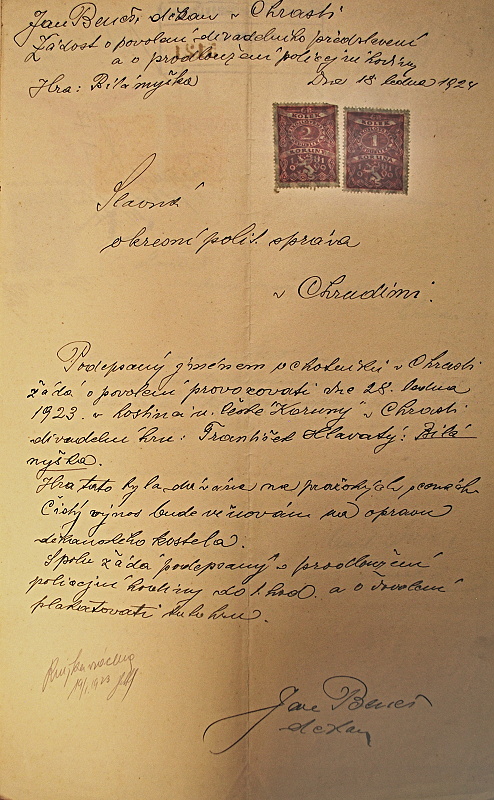 Jan Beneš děkan v Chrasti
Žádost o povolení divadelního představení
a o prodloužení policejní hodiny
Hra: Bílá myška
Dne 18 ledna 1924
KOLEK
2
KORUNY
KOLEK
1
KORUNA
Slavná
okresní polit. správa
v Chrudimi.
Podepsaný jménem ochotníků v Chrasti
žádá o povolení provozovati dne 28. ledna
1923. v hostinci u "České Koruny" v Chrasti
divadelní hru: František Hlavatý: Bílá
myška.
Hra tato byla dávána na pražských scenách
Čistý výnos bude věnován na opravu
děkanského kostela.
Spolu žádá podepsaný o prodloužení
policejní hodiny do 1. hod. a o dovolení
plakátovati tuto hru.
19/1 1923
Jan Beneš
děkan